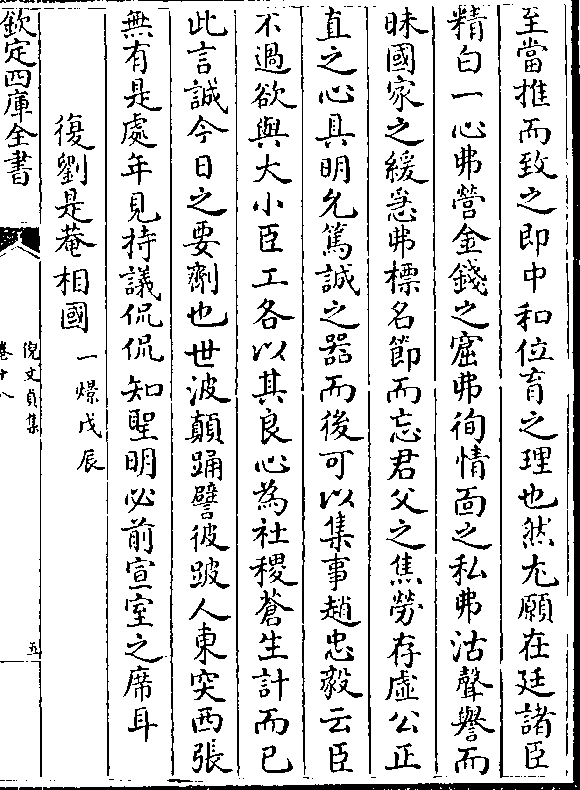 至當推而致之即中和位育之理也然尤願在廷諸臣
精白一心弗營金錢之窟弗徇情面之私弗沽聲譽而
昧國家之緩急弗標名節而忘君父之焦勞存虛公正
直之心具明允篤誠之器而後可以集事趙忠毅云臣
不過欲與大小臣工各以其良心為社稷蒼生計而已
此言誠今日之要劑也世波顛踊譬彼跛人東突西張
無有是處年兄持議侃侃知聖明必前宣室之席耳
復劉是菴相國一燝戊辰
欽定四庫全書
倪文貞集
卷十八
五